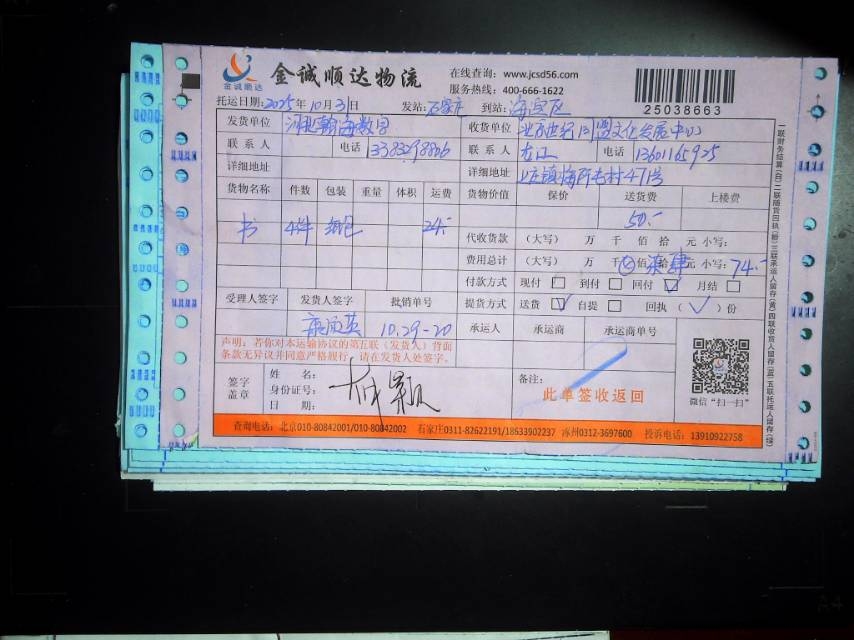 金诚顺达
金诚顺达物流
在线查询：www.jcsd56.com
服务热线：400-666-1622
25038663
托运日期：2025年10月31日 发站：石家庄 到站：海淀区
发货单位 河北瀚海数图 收货单位 发展中心
联系人 电话 联系人 电话 13601165925
详细地址 详细地址 上庄镇梅所屯村471号
货物名称 件数 包装 重量 体积 运费 货物价值 保价 送货费 上楼费
50.-
书 4件 纸包 24.- 代收货款 （大写） 万 千 佰 拾 元 小写：
费用总计 （大写） 万 千 佰 柒拾肆元 小写：74.-
付款方式 现付 到付 回付 月结
受理人签字 发货人签字 批销单号 提货方式 送货 自提 回执（√）份
10.29-20 承运人 承运商 承运商单号
声明：若你对本运输协议的第五联（发货人）背面
条款无异议并同意严格履行，请在发货人处签字。
签字
盖章
姓 名：
身份证号：
日 期：
备注：
此单签收返回
微信“扫一扫”
查询电话：北京010-80842001/010-80842002 石家庄0311-82622191/18633902237 涿州0312-3697600 投诉电话：13910922758
一联财务结算（白）二联随货回执（粉）三联承运人留存（黄）四联收货人留存（蓝）五联托运人留存（绿）